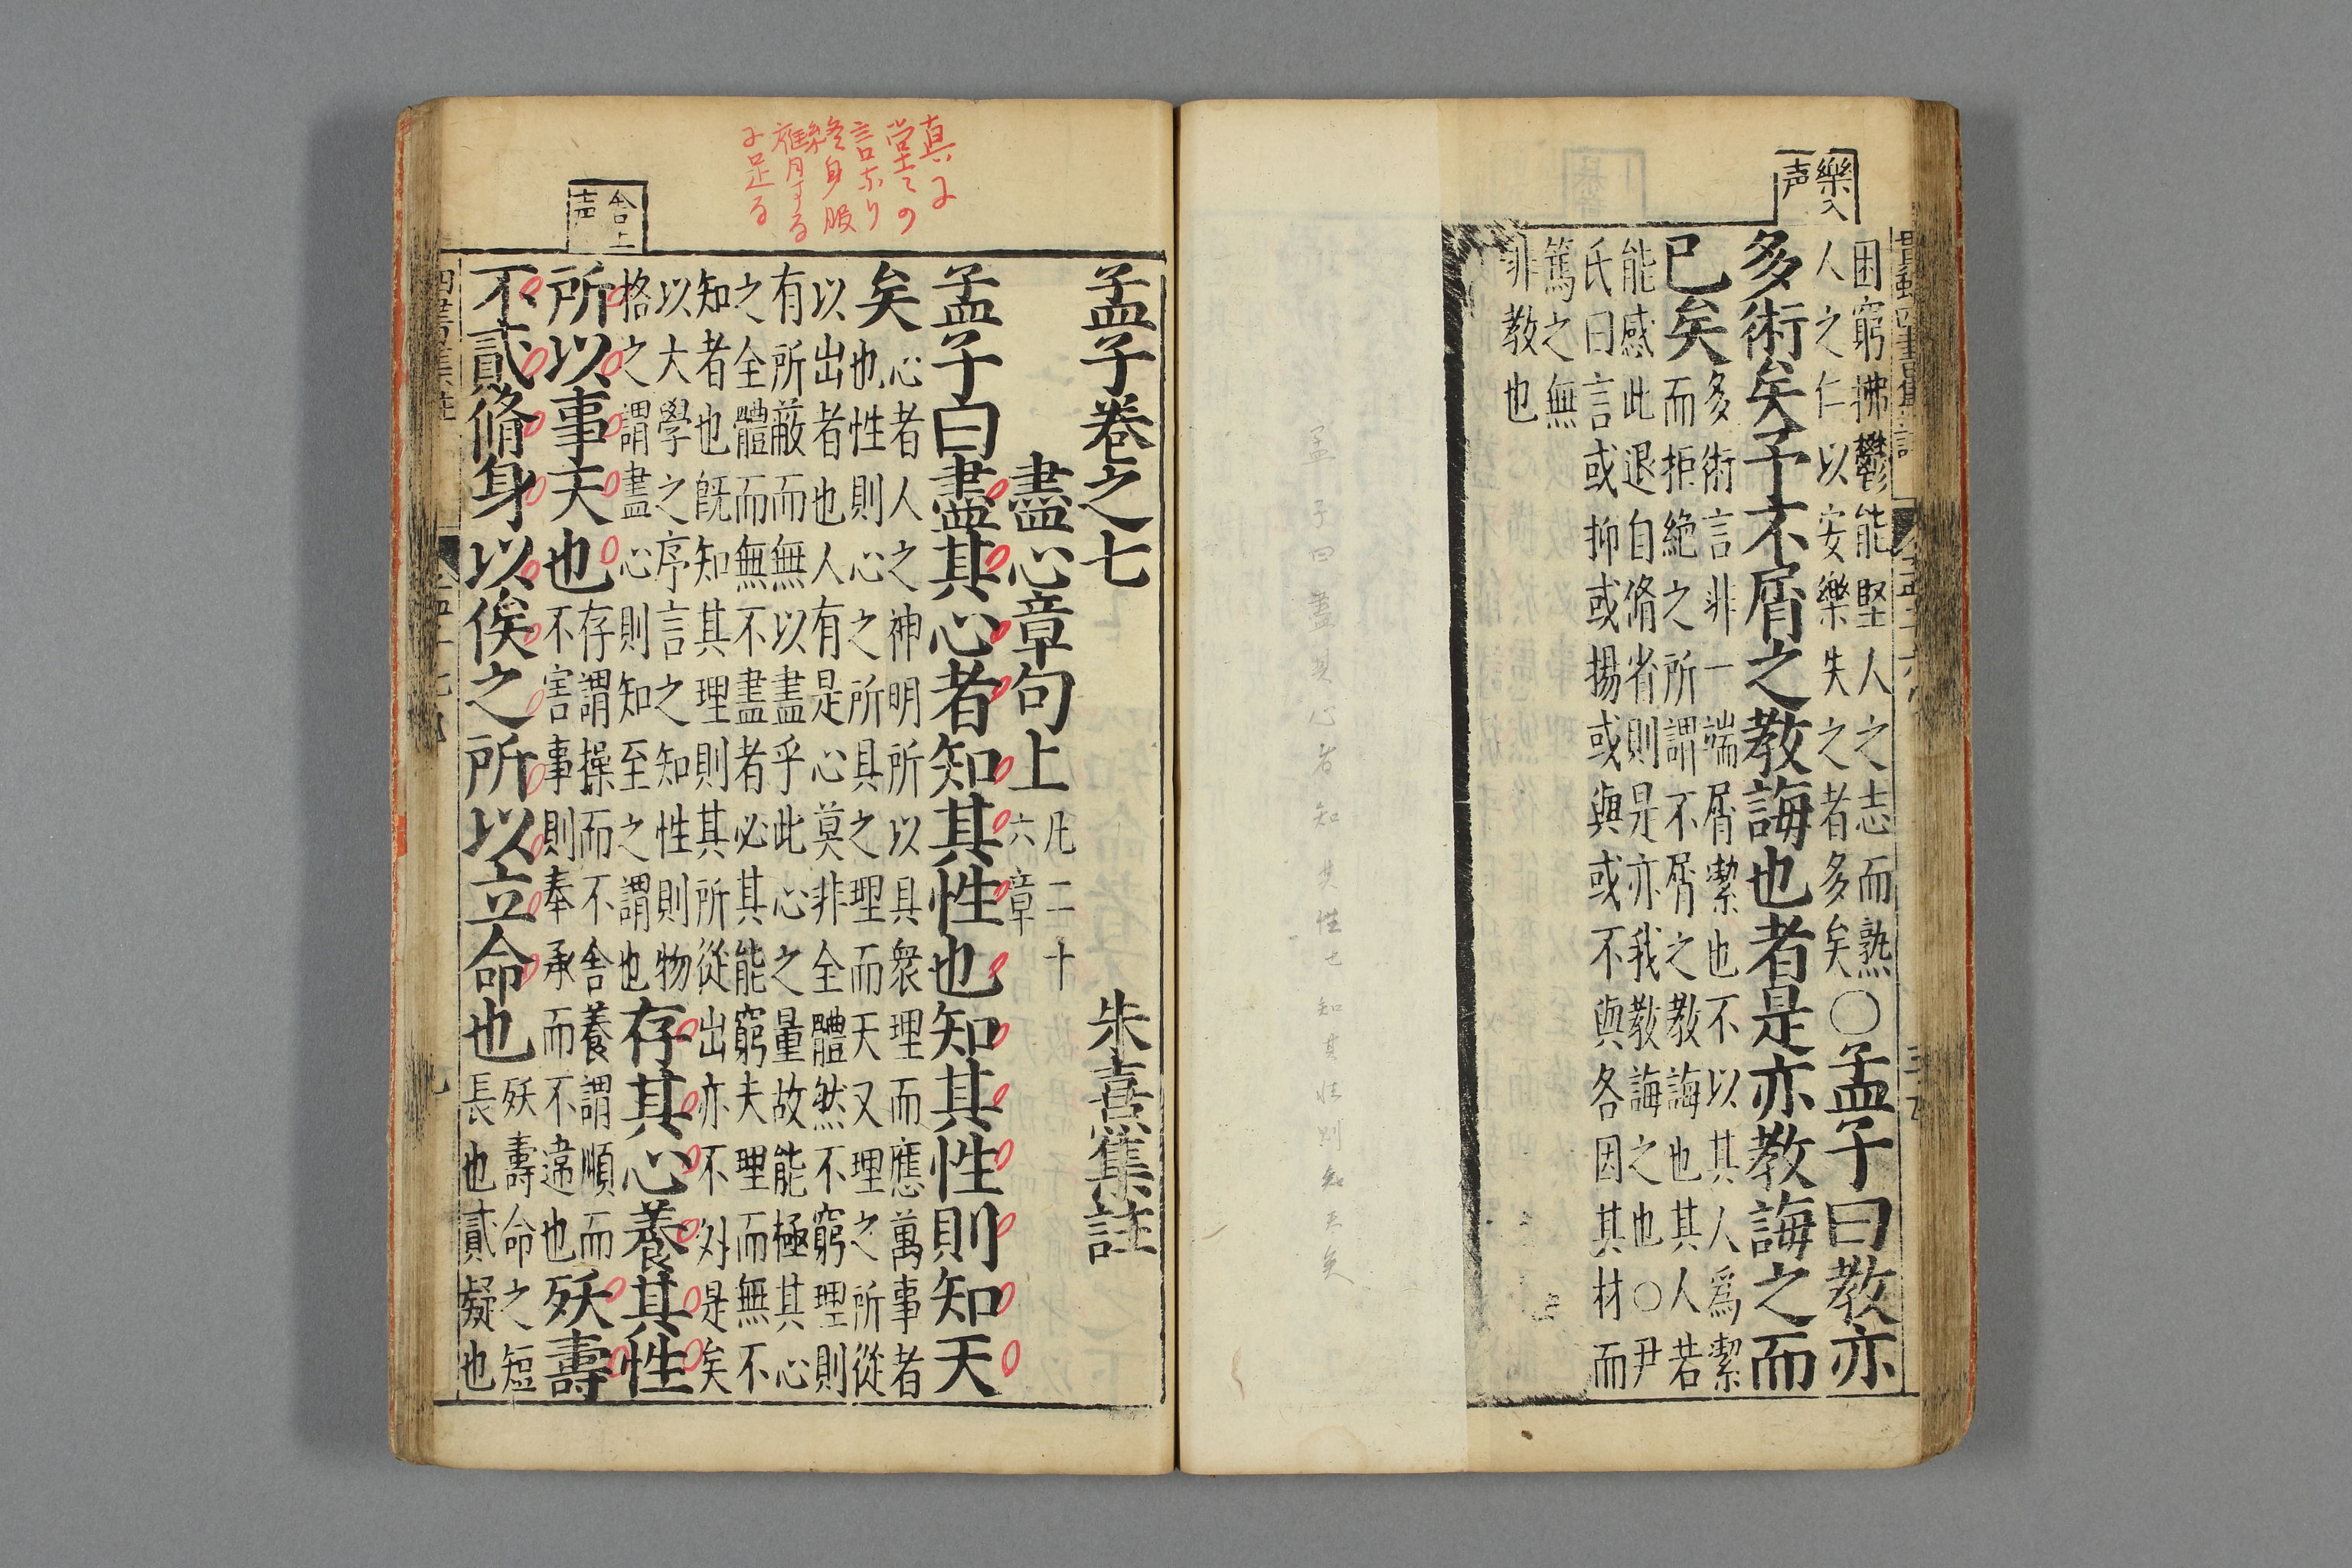 樂入
声
困窮拂鬱能堅人之志而熟
人之仁以安樂失之者多矣〇孟子曰教亦
多術矣予不屑之教誨也者是亦教誨之而
已矣多術言非一端屑潔也不以其人爲潔
而拒絶之所謂不屑之教誨也其人若
能感此退自脩省則是亦我教誨之也〇尹
氏曰言或抑或揚或與或不與各因其材而
篤之無
非教也
孟子曰盡其心者知其性也知其性則知天矣
真に
堂々の
言なり
終身服
膺する
に足る
舎上
声
孟子卷之七
朱熹集註
盡心章句上凡二十
六章
孟子曰盡其心者知其性也知其性則知天
矣心者人之神明所以具衆理而應萬事者
也性則心之所具之理而天又理之所從
以出者也人有是心莫非全體然不窮理則
有所蔽而無以盡乎此心之量故能極其心
之全體而無不盡者必其能窮夫理而無不
知者也既知其理則其所從出亦不外是矣
以大學之序言之知性則物
格之謂盡心則知至之謂也存其心養其性
所以事天也存謂操而不舎養謂順而
不害事則奉承而不違也殀壽
不貳脩身以俟之所以立命也殀壽命之短
長也貳疑也